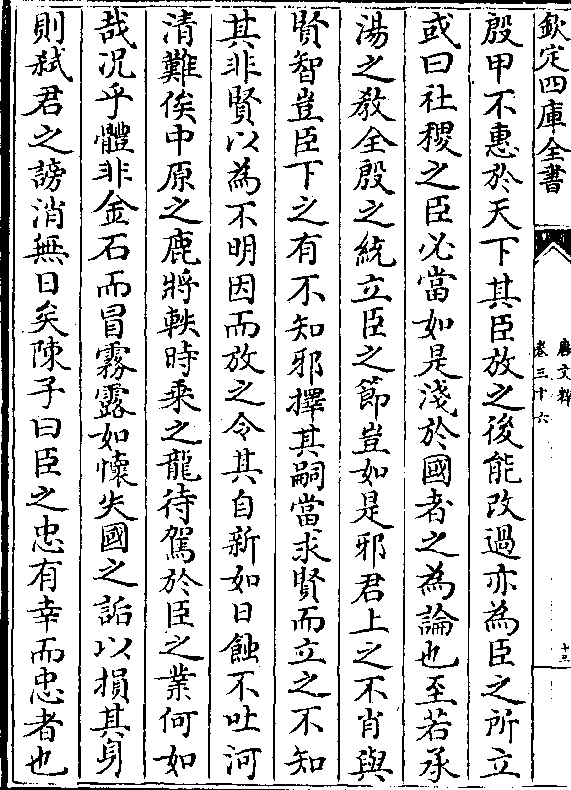 欽定四庫全書
唐文粹
卷三十六
十三
殷甲不惠於天下其臣放之後能改過亦為臣之所立
或曰社稷之臣必當如是淺於國者之為論也至若承
湯之教全殷之統立臣之節豈如是邪君上之不肖與
賢智豈臣下之有不知邪擇其嗣當求賢而立之不知
其非賢以為不明因而放之令其自新如日蝕不吐河
清難俟中原之鹿將軼時乘之龍待駕於臣之業何如
哉況乎體非金石而冒霧露如懷失國之詬以損其身
則弑君之謗消無日矣陳子曰臣之忠有幸而忠者也